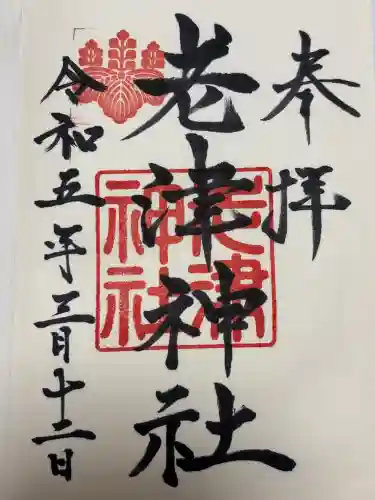 奉拝
老津神社
令和五年三月十二日
老津
神社